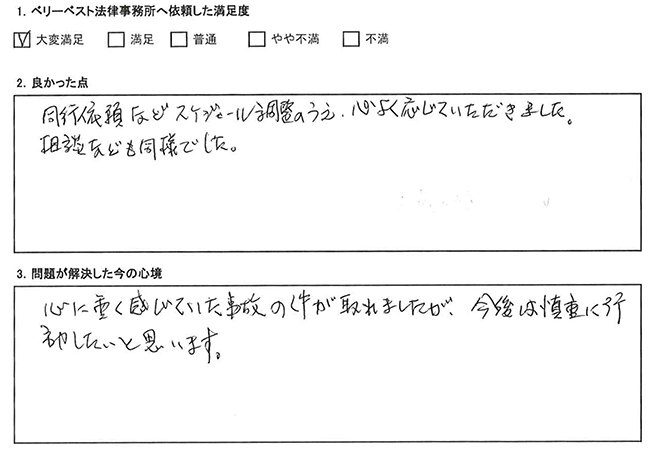 1. ベリーベスト法律事務所へ依頼した満足度
☑ 大変満足 □ 満足 □ 普通 □ やや不満 □ 不満
2. 良かった点
同行依頼などスケジュール調整のうえ、心よく応じていただきました。
相談なども同様でした。
3. 問題が解決した今の心境
心に重く感じていた事故の件が取れましたが、今後は慎重に行
動したいと思います。